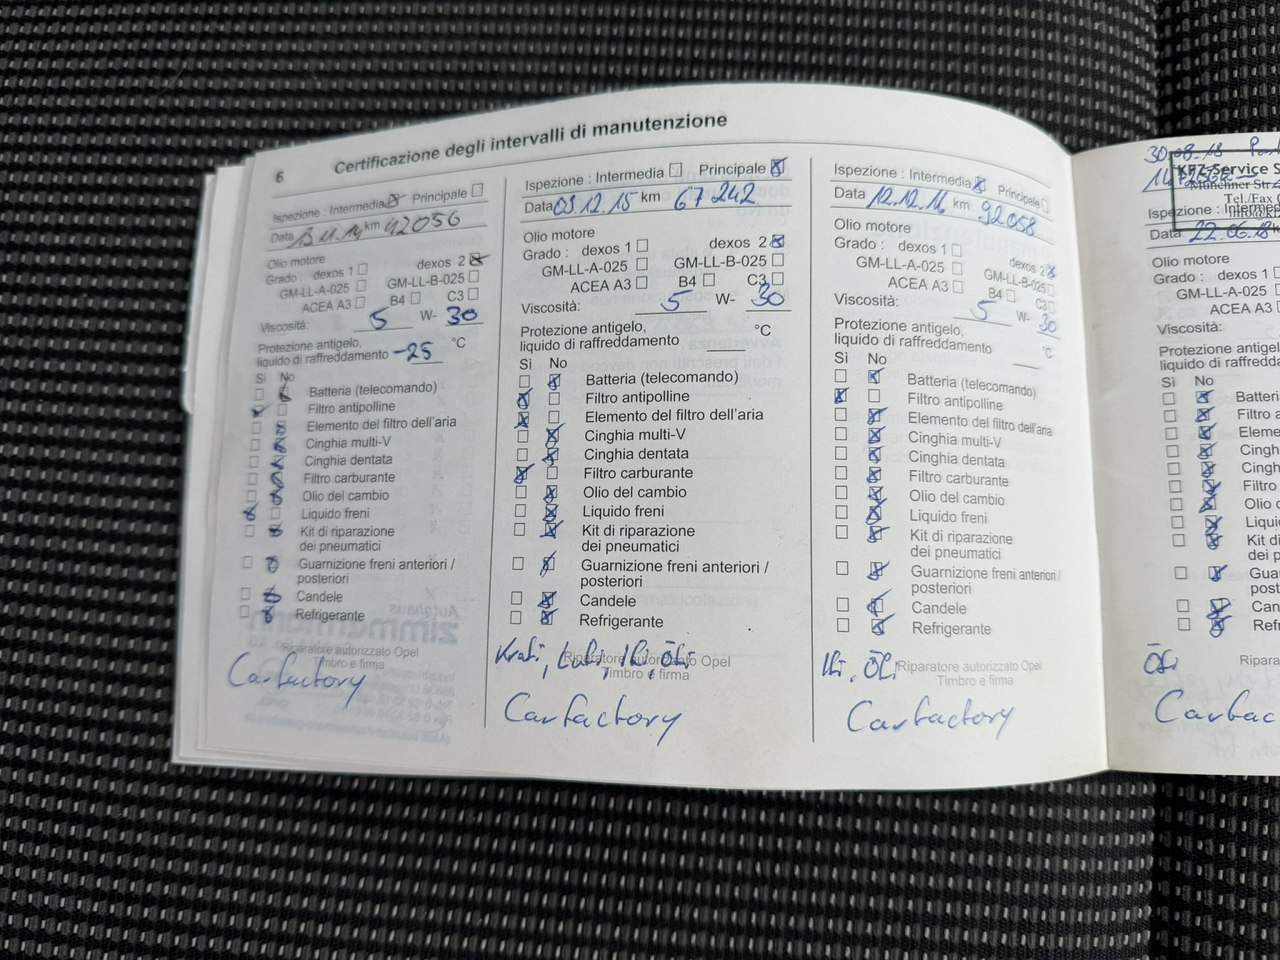 6
Certificazione degli intervalli di manutenzione
Ispezione : Intermedia Principale
Data 13.11.14 km 42056
Olio motore
Grado : dexos 1 dexos 2
GM-LL-A-025 GM-LL-B-025
ACEA A3 B4 C3
Viscosità: 5 W- 30
Protezione antigelo,
liquido di raffreddamento -25 °C
Sì No
Batteria (telecomando)
Filtro antipolline
Elemento del filtro dell'aria
Cinghia multi-V
Cinghia dentata
Filtro carburante
Olio del cambio
Liquido freni
Kit di riparazione
dei pneumatici
Guarnizione freni anteriori /
posteriori
Candele
Refrigerante
Riparatore autorizzato Opel
Timbro e firma
Carfactory
Ispezione : Intermedia Principale
Data 03.12.15 km 67242
Olio motore
Grado : dexos 1 dexos 2
GM-LL-A-025 GM-LL-B-025
ACEA A3 B4 C3
Viscosità: 5 W- 30
Protezione antigelo,
liquido di raffreddamento °C
Sì No
Batteria (telecomando)
Filtro antipolline
Elemento del filtro dell'aria
Cinghia multi-V
Cinghia dentata
Filtro carburante
Olio del cambio
Liquido freni
Kit di riparazione
dei pneumatici
Guarnizione freni anteriori /
posteriori
Candele
Refrigerante
Krafi, Lufi, Ifi, Öfi
Riparatore autorizzato Opel
Timbro e firma
Carfactory
Ispezione : Intermedia Principale
Data 12.12.16 km 92058
Olio motore
Grado : dexos 1 dexos 2
GM-LL-A-025 GM-LL-B-025
ACEA A3 B4 C3
Viscosità: 5 W- 30
Protezione antigelo,
liquido di raffreddamento °C
Sì No
Batteria (telecomando)
Filtro antipolline
Elemento del filtro dell'aria
Cinghia multi-V
Cinghia dentata
Filtro carburante
Olio del cambio
Liquido freni
Kit di riparazione
dei pneumatici
Guarnizione freni anteriori /
posteriori
Candele
Refrigerante
Ifi, Öfi
Riparatore autorizzato Opel
Timbro e firma
Carfactory
30.08.18
KFZ-Service S
Münchner Str.
Tel./Fax
Ispezione : Interme
Data 22.06.18 k
Olio motore
Grado : dexos 1
GM-LL-A-025
ACEA A3
Viscosità:
Protezione antigel
liquido di raffredda
Sì No
Batteri
Filtro a
Eleme
Cingh
Cingh
Filtro
Olio d
Liqui
Kit di
dei p
Gua
post
Can
Ref
Öfi
Ripara
Carfac